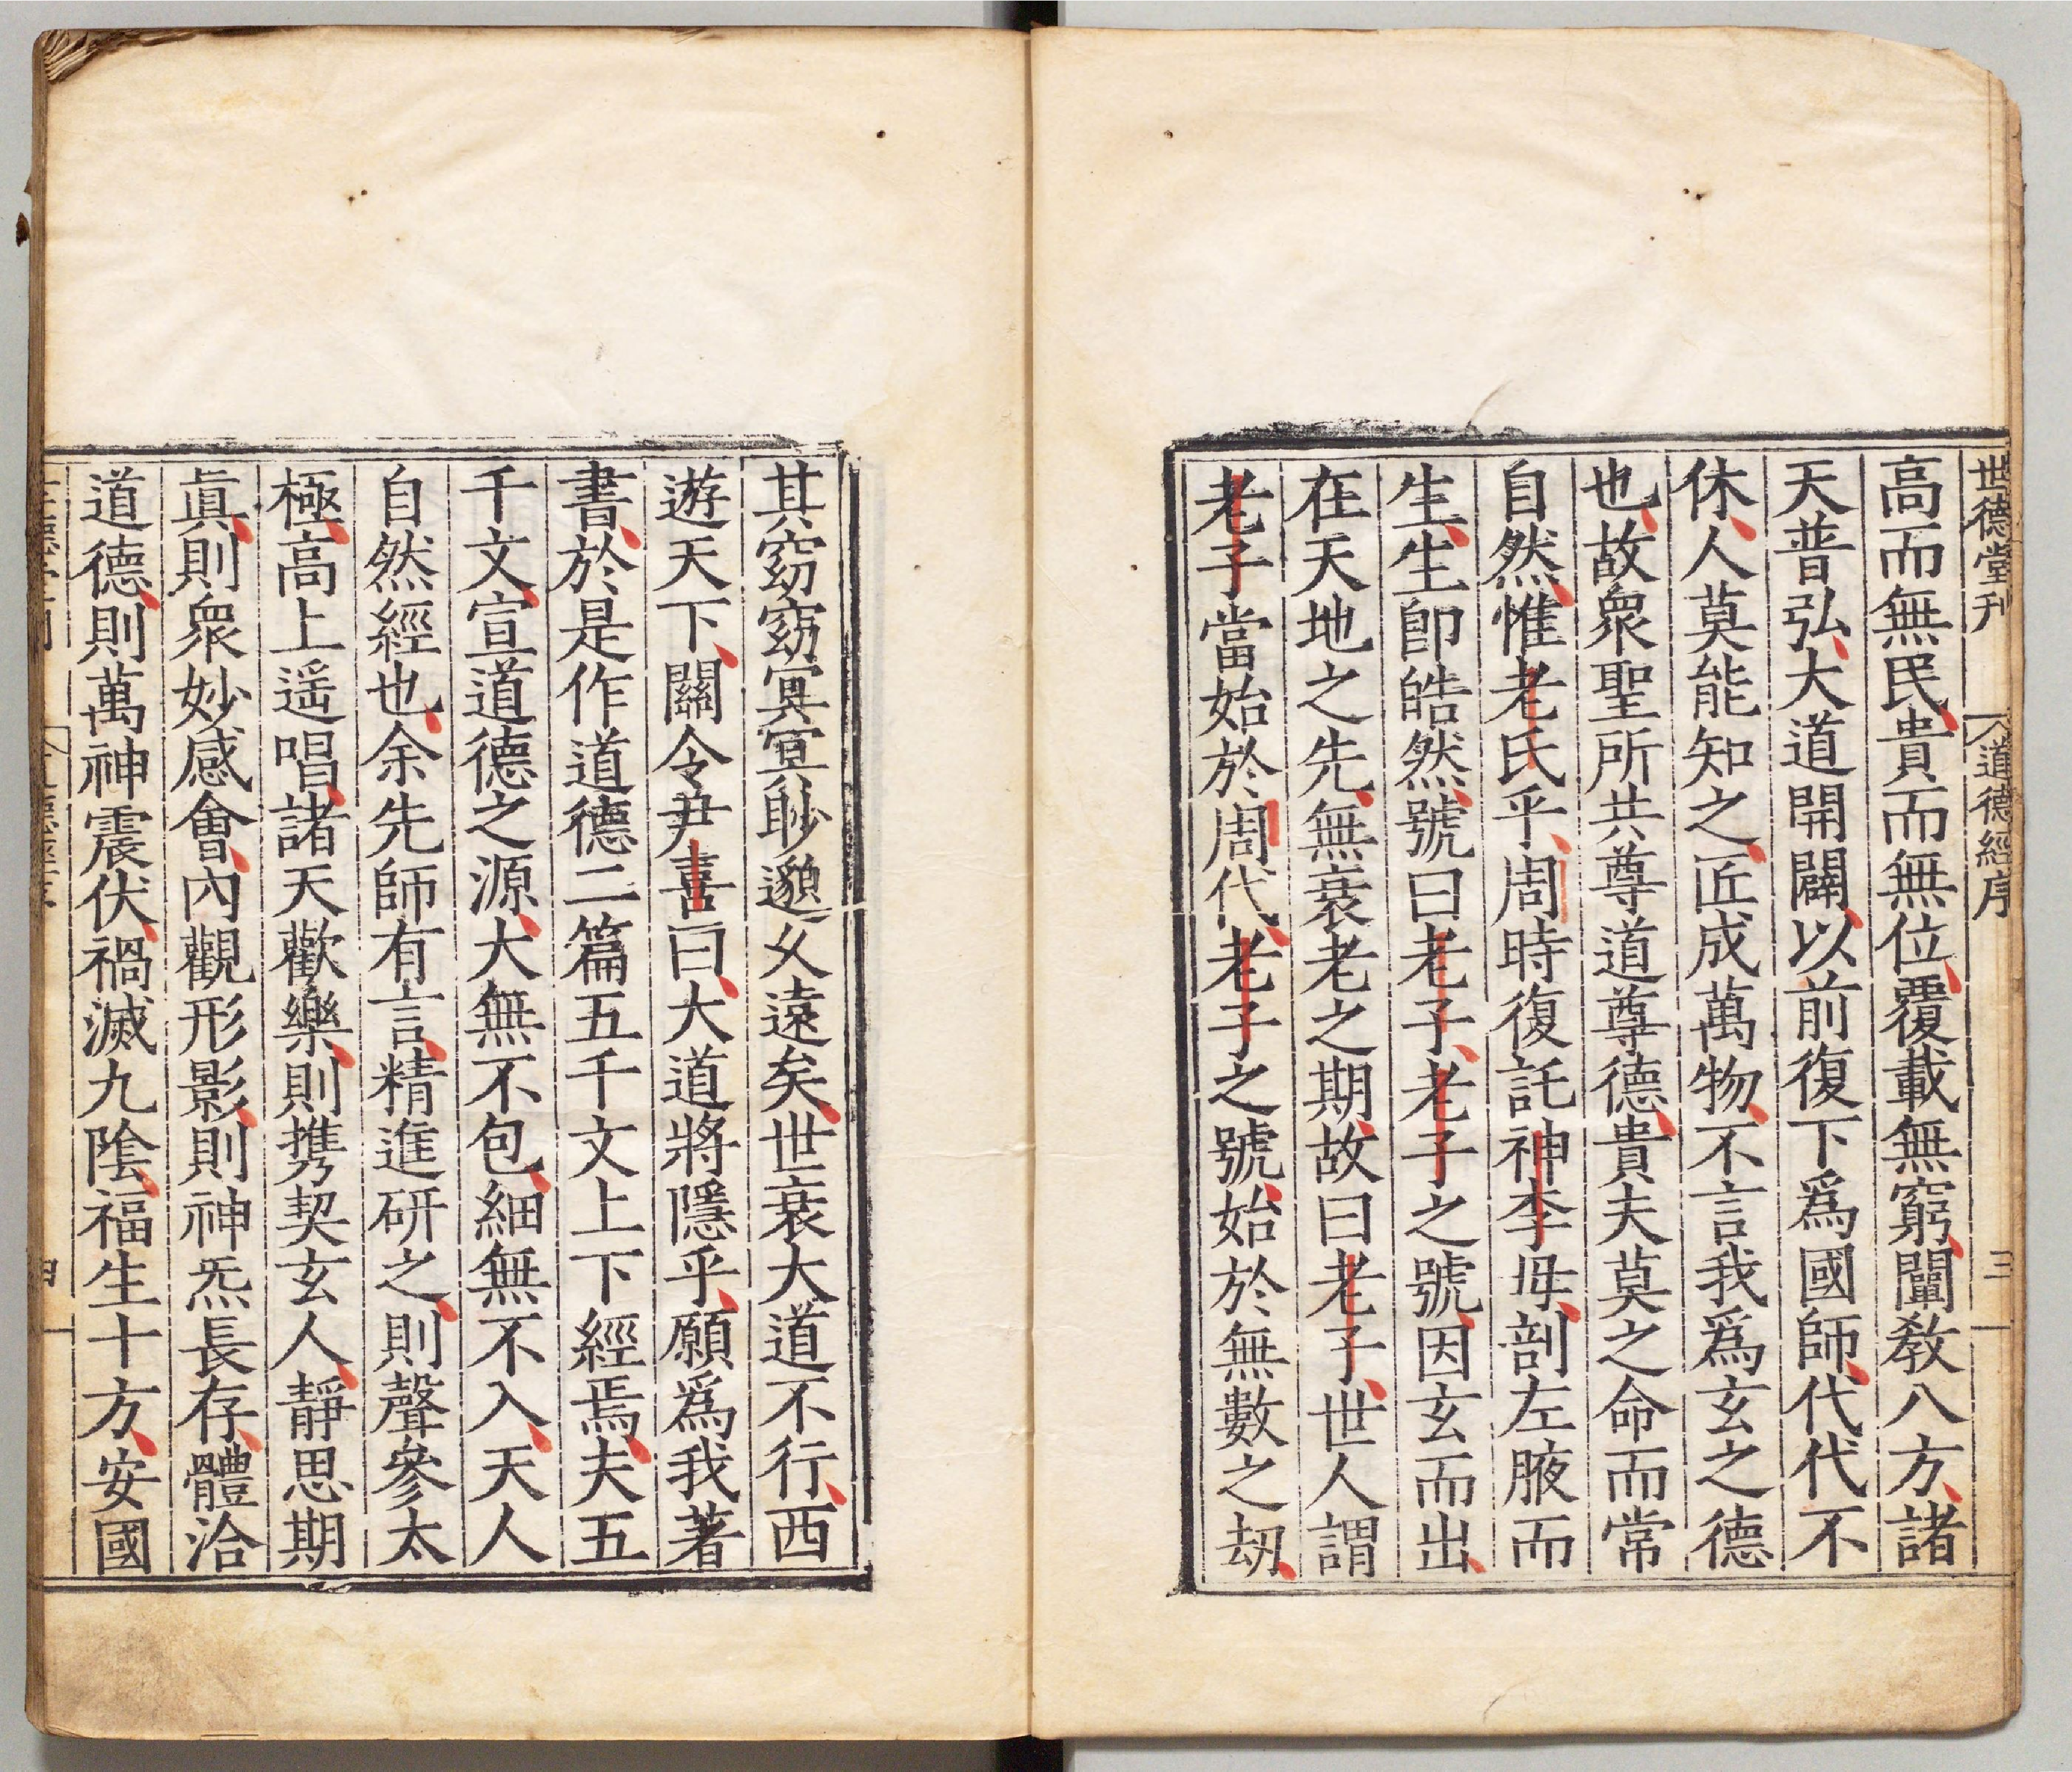 世德堂刊 道德經序 三
高而無民貴而無位覆載無窮闡敎八方諸
天普弘大道開闢以前復下爲國師代代不
休人莫能知之匠成萬物不言我爲玄之德
也故衆聖所共尊道尊德貴夫莫之命而常
自然惟老氏乎周時復託神李母剖左腋而
生生卽皓然號曰老子老子之號因玄而出
在天地之先無衰老之期故曰老子世人謂
老子當始於周代老子之號始於無數之刼
其窈窈冥冥眇邈久遠矣世衰大道不行西
遊天下關令尹喜曰大道將隱乎願爲我著
書於是作道德二篇五千文上下經焉夫五
千文宣道德之源大無不包細無不入天人
自然經也余先師有言精進研之則聲參太
極高上遥唱諸天歡樂則携契玄人靜思期
眞則衆妙感會內觀形影則神炁長存體洽
道德則萬神震伏禍滅九陰福生十方安國
四